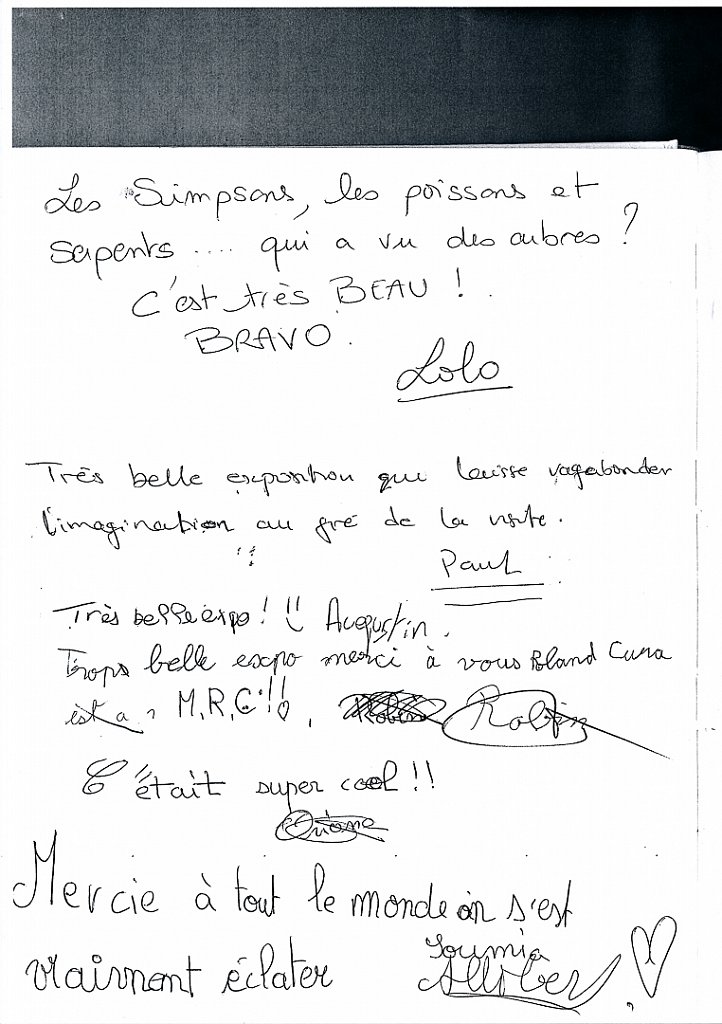 Les Simpsons, les poissons et
serpents .... qui a vu des arbres ?
C'est très BEAU !
BRAVO.
Lolo
Très belle exposition qui laisse vagabonder
l'imagination au gré de la visite.
Paul
Très belle expo! Augustin.
Trops belle expo merci à vous
M.R.C.!!
Robin
C'était super cool !!
Mercie à tout le monde on s'est
vraimment éclater
Soumia